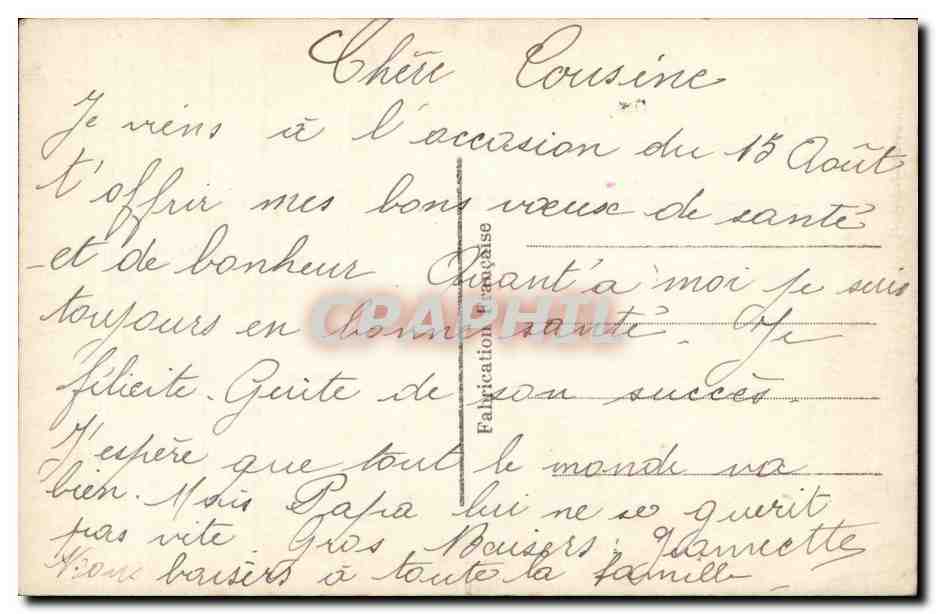 Chère Cousine
Je viens à l'occasion du 15 Août
t'offrir mes bons vœux de santé
et de bonheur Quant'a moi je suis
toujours en bonne santé. Je
félicite. Genite de son succès.
J'espère que tout le monde va
bien. Mais Papa lui ne se guerit
pas vite. Gros Baisers:
baisers à toute la famille
Fabrication Française
CPAPHIL